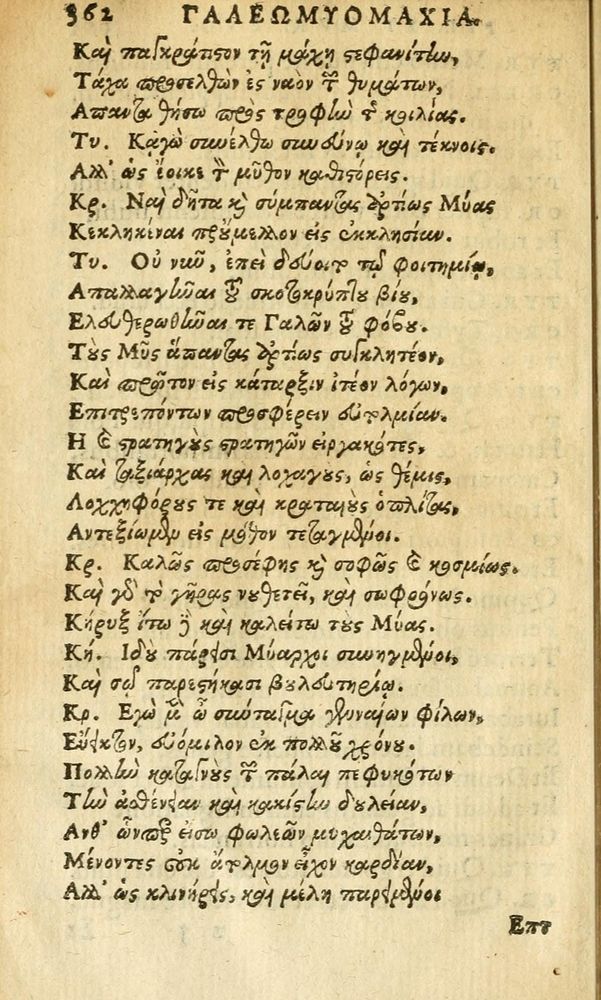 362 ΓΑΛΕΩΜΥΟΜΑΧΙΑ.
Καὶ παγκράτιστον τῇ μάχῃ στεφανίτην,
Τάχα προσελθὼν ἐς ναὸν τῶν θυμάτων,
Απαντα θήσω πρὸς τροφὴν τῆς κοιλίας.
Τυ. Καγὼ συνέλθω συνδύνῳ καὶ τέκνοις.
Αλλ' ὡς ἔοικε τὸν μῦθον καθιστόρεις.
Κρ. Ναὶ δῆτα καὶ σύμπαντας ἀρτίως Μύας
Κεκληκέναι προὔμελλον εἰς ἐκκλησίαν.
Τυ. Οὐ νιῦ, ἐπεὶ δεύοιτο τῷ φοιτημίῳ,
Απαλλαγῆναι τοῦ σκοτοκρύπτου βίου,
Ελευθερωθῆναι τε Γαλῶν τοῦ φόβου.
Τοὺς Μῦς ἅπαντας ἀρτίως συγκλητέον,
Καὶ πρῶτον εἰς κάταρξιν ἰτέον λόγων,
Επιτρεπόντων προσφέρειν εὐτολμίαν.
Η καὶ στρατηγοὺς στρατηγῶν εἰργακότες,
Καὶ ταξιάρχας καὶ λοχαγοὺς, ὡς θέμις,
Λογχηφόρους τε καὶ κραταιοὺς ὁπλίτας,
Αντεξίωμεν εἰς μόθον τεταγμένοι.
Κρ. Καλῶς προσέφης καὶ σοφῶς καὶ κοσμίως.
Καὶ γὰρ τὸ γῆρας νουθετεῖ, καὶ σωφρόνως.
Κήρυξ ἴτω δὲ καὶ καλείτω τοὺς Μύας.
Κή. Ιδοὺ πάρεισι Μύαρχοι συνηγμένοι,
Καὶ σῷ παρεστήκασι βουλευτηρίῳ.
Κρ. Εγὼ μὲν ὦ σύνταγμα γενναίων φίλων,
Εὔεκτον, εὐόμιλον ἐκ πολλοῦ χρόνου.
Πολλὴν καταγνοὺς τῶν πάλαι πεφυκότων
Τὴν ἀσθένειαν καὶ κακίστην δουλείαν,
Ανθ' ὧνπερ εἴσω φωλεῶν μυχαιτάτων,
Μένοντες οὐκ εὔτολμον εἶχον καρδίαν,
Αλλ' ὡς κλινήρεις, καὶ μέλη παρειμένοι
Επτ